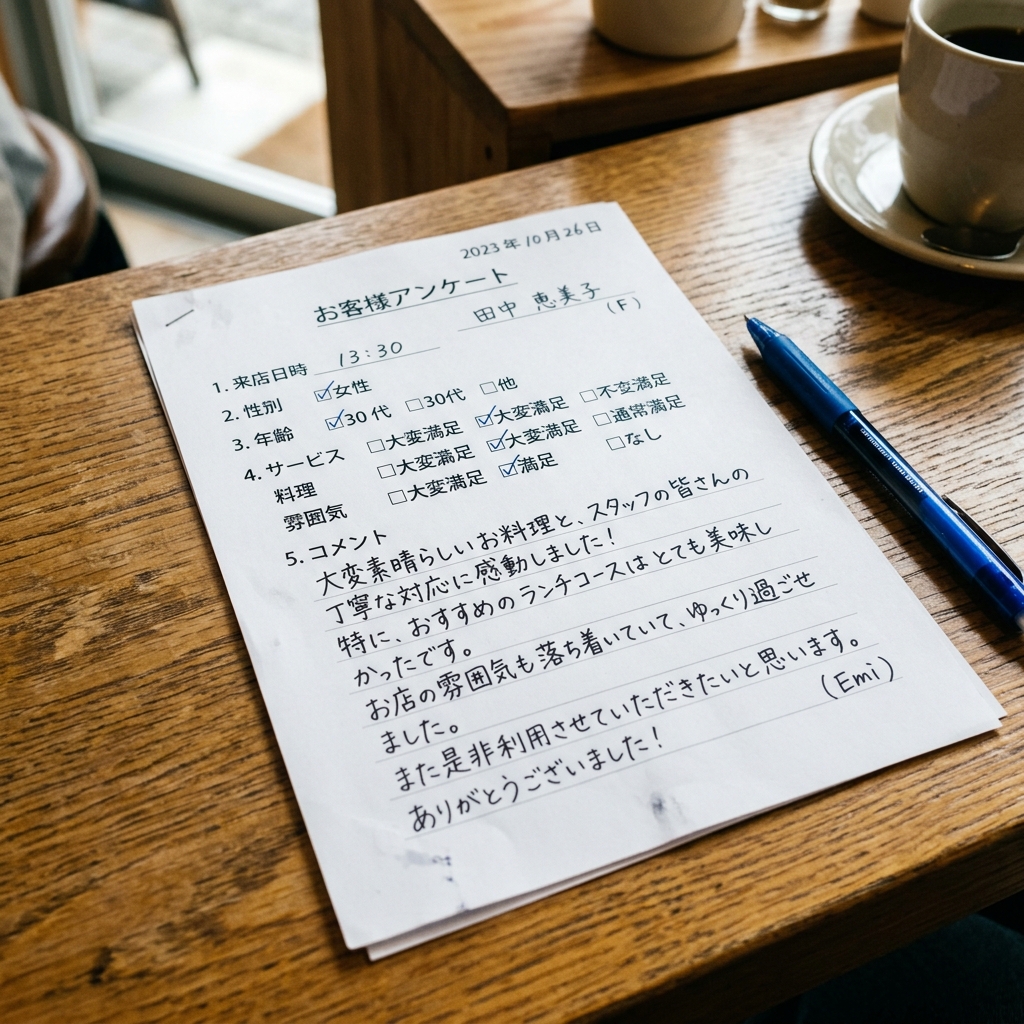 2023年10月26日
お客様アンケート
田中 恵美子
(F)
1. 来店日時 13:30
2. 性別 ☑女性
3. 年齢 ☑30代 ☐30代 ☐他
4. サービス ☐大変満足 ☑大変満足 ☐不変満足
料理 ☐大変満足 ☑大変満足 ☐通常満足
雰囲気 ☐大変満足 ☑満足 ☐なし
5. コメント
大変素晴らしいお料理と、スタッフの皆さんの
丁寧な対応に感動しました!
特に、おすすめのランチコースはとても美味し
かったです。
お店の雰囲気も落ち着いていて、ゆっくり過ごせ
ました。
また是非利用させていただきたいと思います。
ありがとうございました!
(Emi)